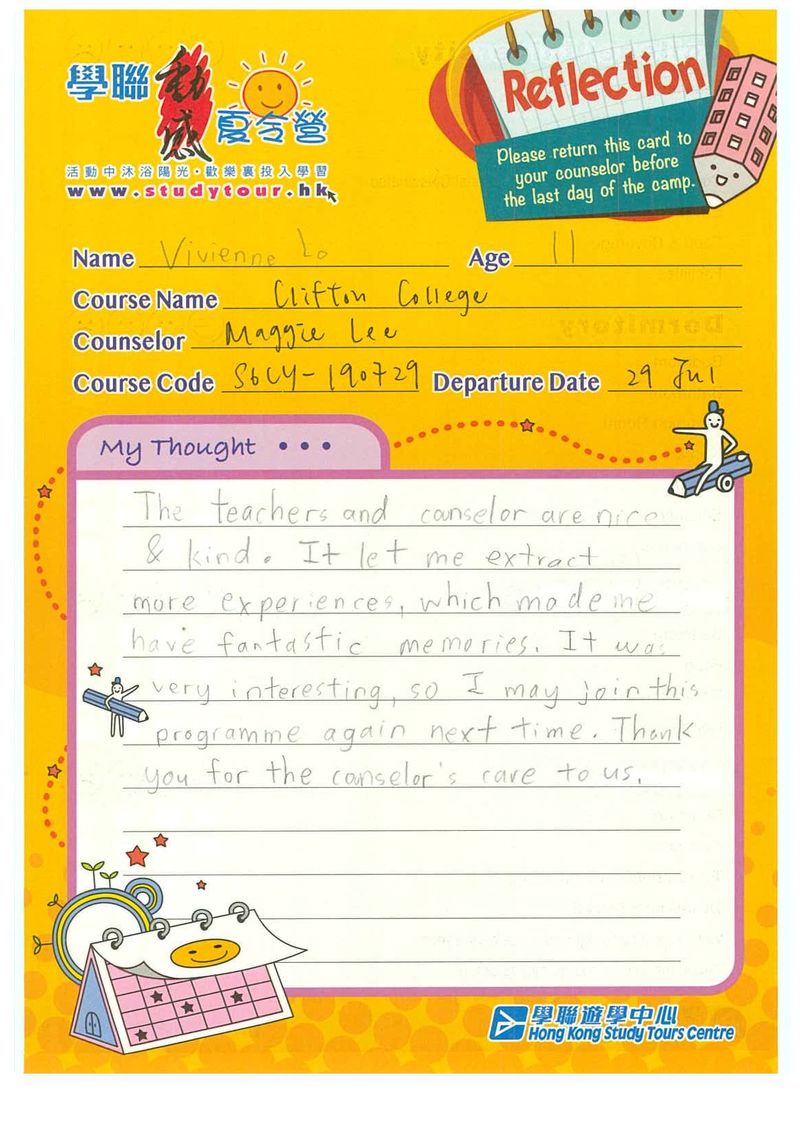 學聯 動感 夏令營
活動中沐浴陽光·歡樂裏投入學習
www.studytour.hk
Reflection
Please return this card to
your counselor before
the last day of the camp.
Name Vivienne Lo Age 11
Course Name Clifton College
Counselor Maggie Lee
Course Code S6CY-190729 Departure Date 29 Jul
My Thought • • •
The teachers and canselor are nice
& kind. It let me extract
more experiences, which made me
have fantastic memories. It was
very interesting, so I may join this
programme again next time. Thank
you for the canselor's care to us.
學聯遊學中心
Hong Kong Study Tours Centre